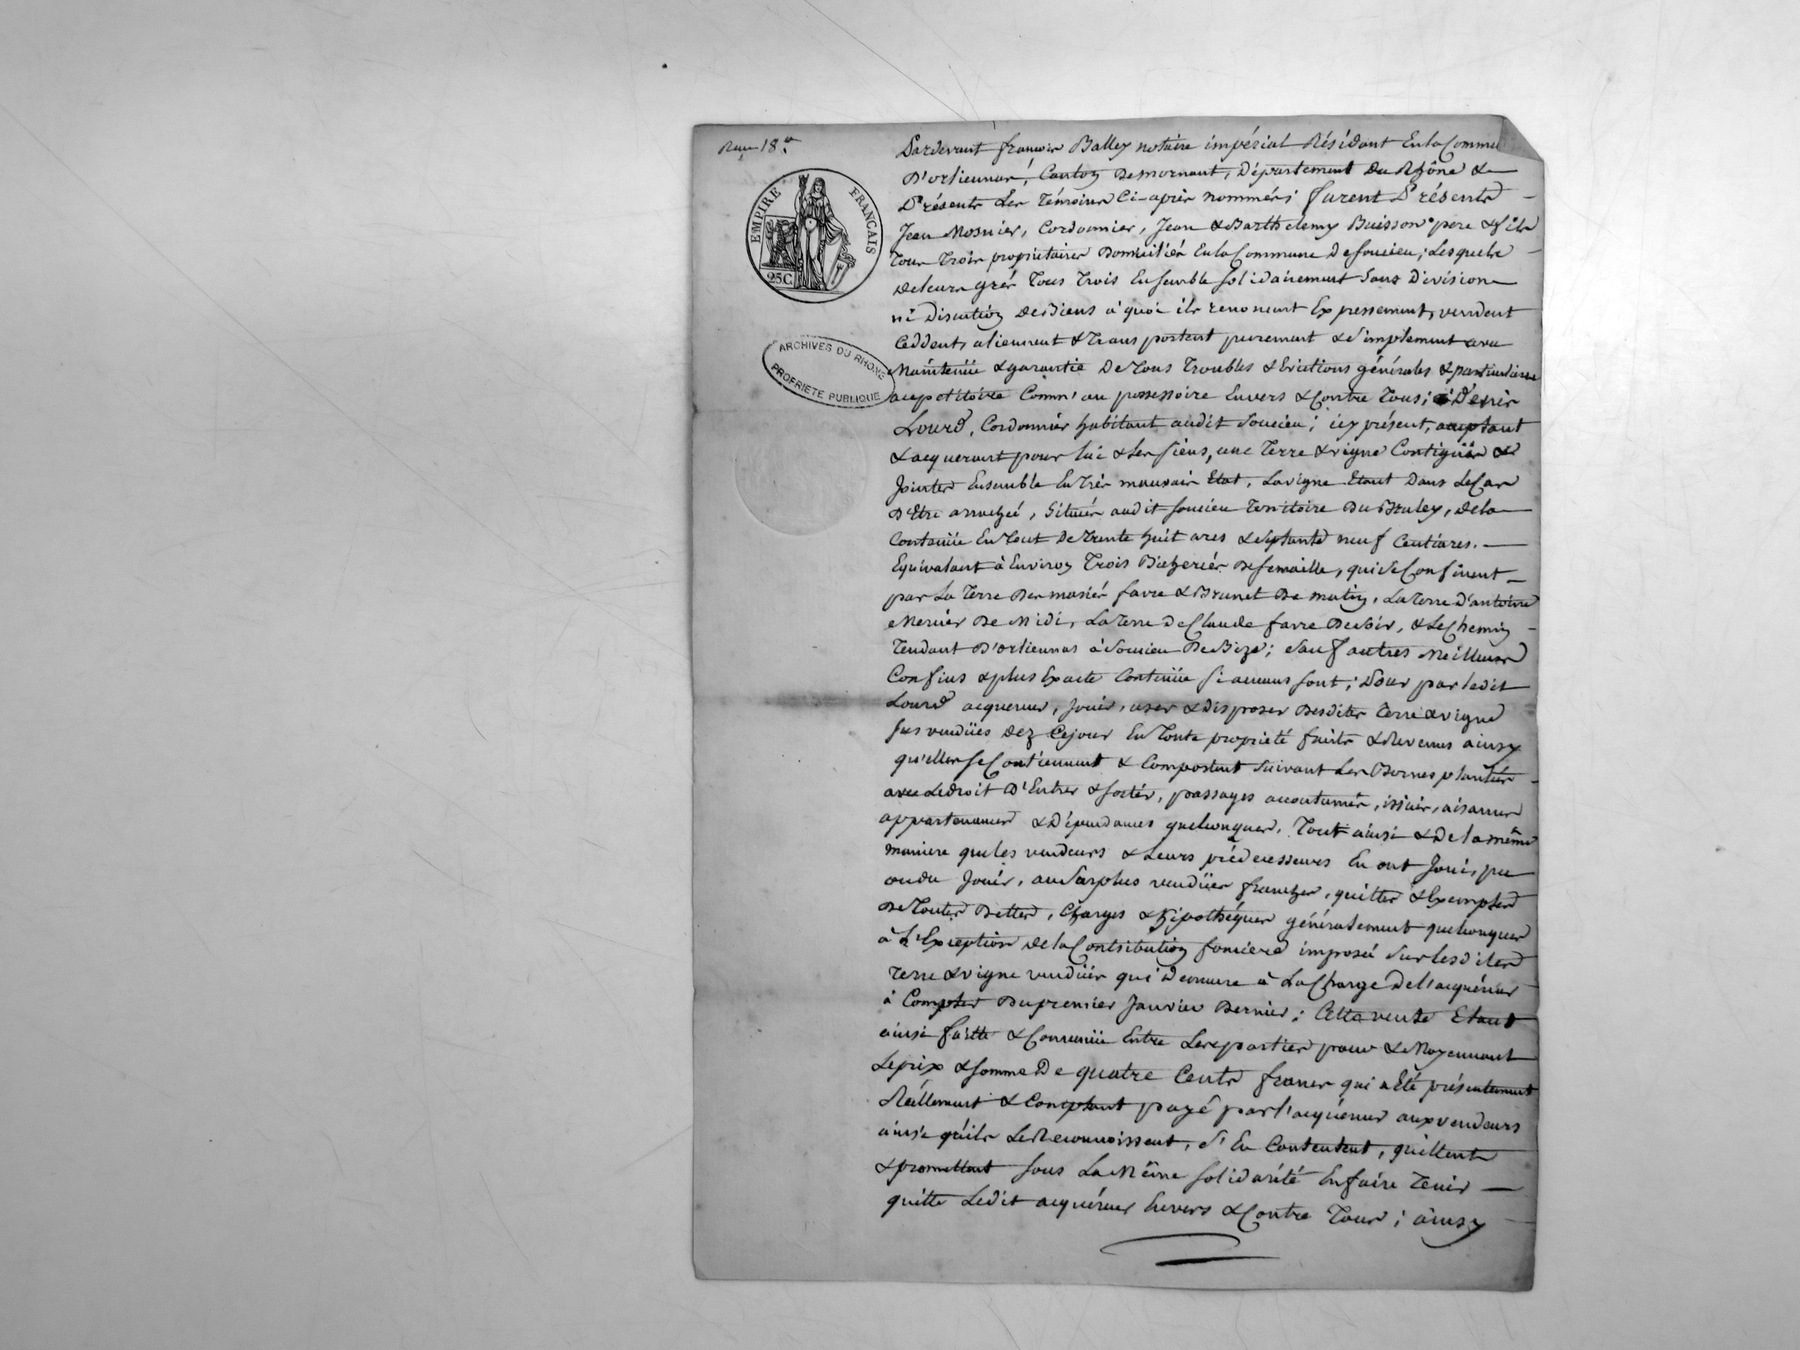 18.e
EMPIRE FRANÇAIS
25C
ARCHIVES DU RHONE
PROPRIETE PUBLIQUE
Pardevant françois Balley notaire impérial Résidant En la Commune
D'orliennas, Canton De mornant, Département Du Rhône &
Présents Les Témoins Ci-après nommés; furent Présents
Jean Mosnier, Cordonnier, Jean & Barthelemy Buisson pere & fils
Tous Trois propriétaires Domiciliés En la Commune De Soucieu; Lesquels
De leurs gréz Tous Trois Ensemble solidairement Sans Division
ni Discution De Biens à quoi ils renoncent Expressement, vendent
Ceddent, aliennent & Transportent purement & simplement avec
Maintenüe & garantie De Tous Troubles & Evictions générales & particulieres
au petitoire Comm' au possessoire Envers & Contre Tous; à Denis
Lourd, Cordonnier habitant audit Soucieu; icy présent, acceptant
& acquerant pour lui & les siens, une Terre & vigne Contigües &
Jointes Ensemble En Très mauvais Etat, La vigne Etant Dans Le Cas
D'Etre arrachée, Situés audit Soucieu Territoire Du Bruley, De la
Contenüe En Tout De Trente huit ares & septante neuf Centiares.
Equivalant à Environ Trois Bicherées De semaille, qui se Confinent
par La Terre Des mariés favre & Brunet De matin, La Terre D'antoine
Mernier De Midi, La Terre De Claude favre De soir, & Le Chemin
Tendant D'orliennas à Soucieu De Bize; sauf autres Meilleurs
Confins & plus Exacte Contenüe si aucuns sont; Pour par ledit
Lourd acquereur, jouir, user & disposer Desdites Terre & vigne
sus vendües dez Cejour En Toute propriété fruits & Revenus ainsy
qu'elles se Contiennent & Comportent Suivant Les Bornes plantées
avec Le droit D'Entrer & sortir, passages accoutumés, issües, aisances
appartenances & Dépendances quelconques, Tout ainsi & De la même
maniere que les vendeurs & Leurs prédecesseurs En ont Joui, pu
ou du Jouir, au Surplus vendües franches, quittes & Exemptes
De Toutes Dettes, Charges & hipothéques généralement quelconques
à L'Exception de la Contribution fonciere imposée sur lesdites
Terre & vigne vendües qui Demeure à La Charge De l'acquéreur
à Compter Du premier Janvier Dernier; Cette vente Etant
ainsi faitte & Convenüe Entre Les parties pour & Moyennant
Le prix & somme De quatre Cents francs qui a Eté présentement
Réellement & Comptant payé par l'acquéreur aux vendeurs
ainsi qu'ils Le Reconnoissent, s'En Contentent, quittent
& promettent sous La Même solidarité En faire Tenir
quitte Ledit acquéreur Envers & Contre Tous; ainsy